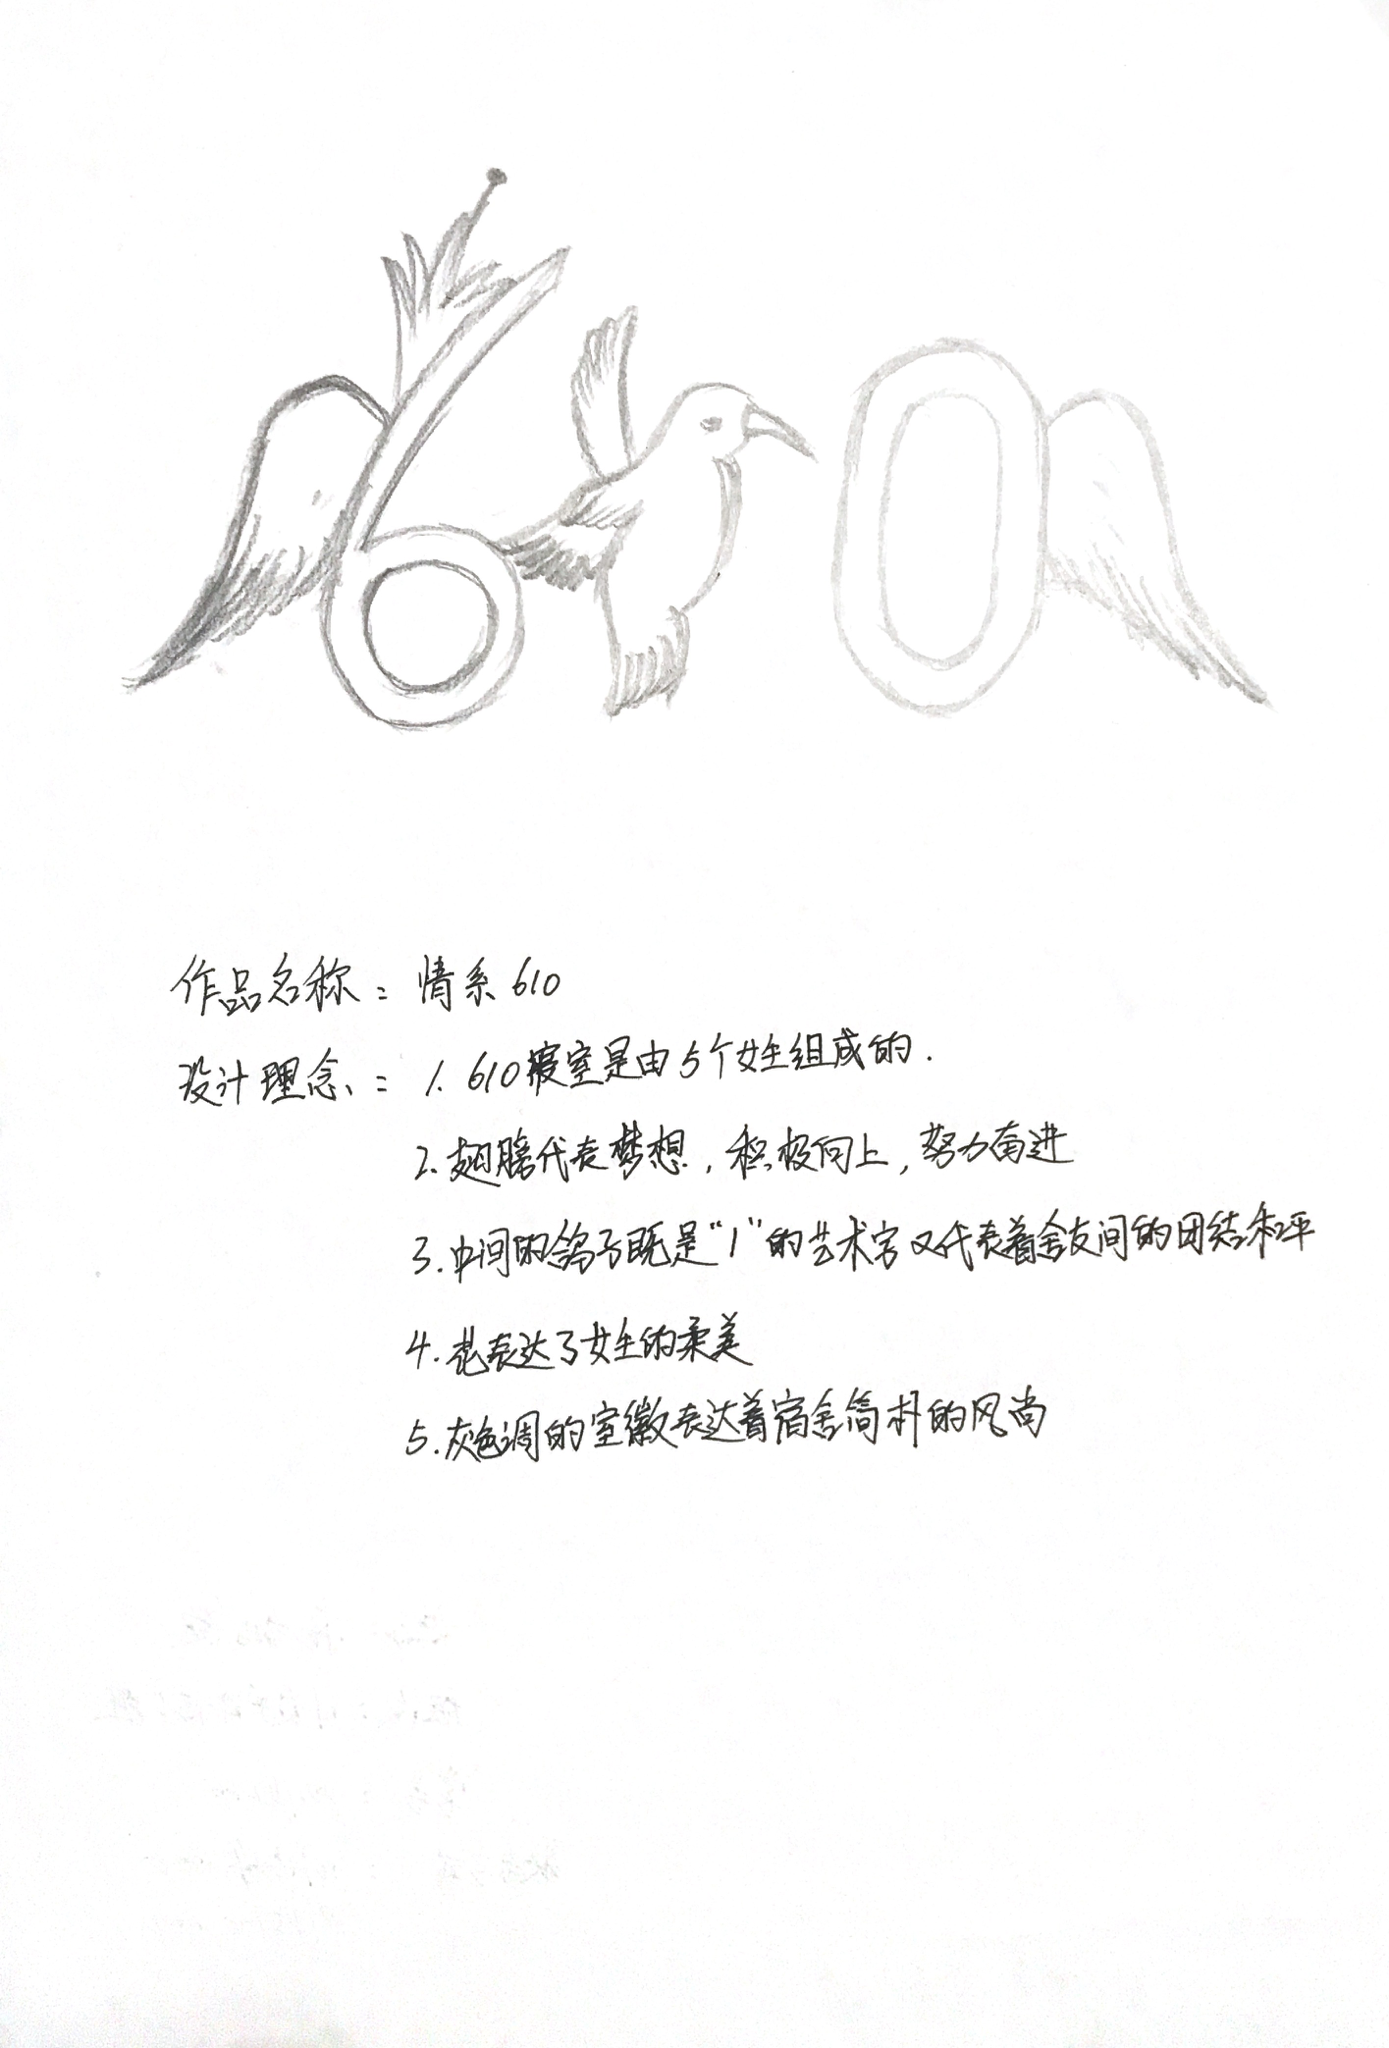 610
作品名称：情系610
设计理念：1. 610寝室是由5个女生组成的.
2. 翅膀代表梦想，积极向上，努力奋进
3. 中间的鸽子既是“1”的艺术字又代表着舍友间的团结和平
4. 花表达了女生的柔美
5. 灰色调的室徽表达着宿舍简朴的风尚